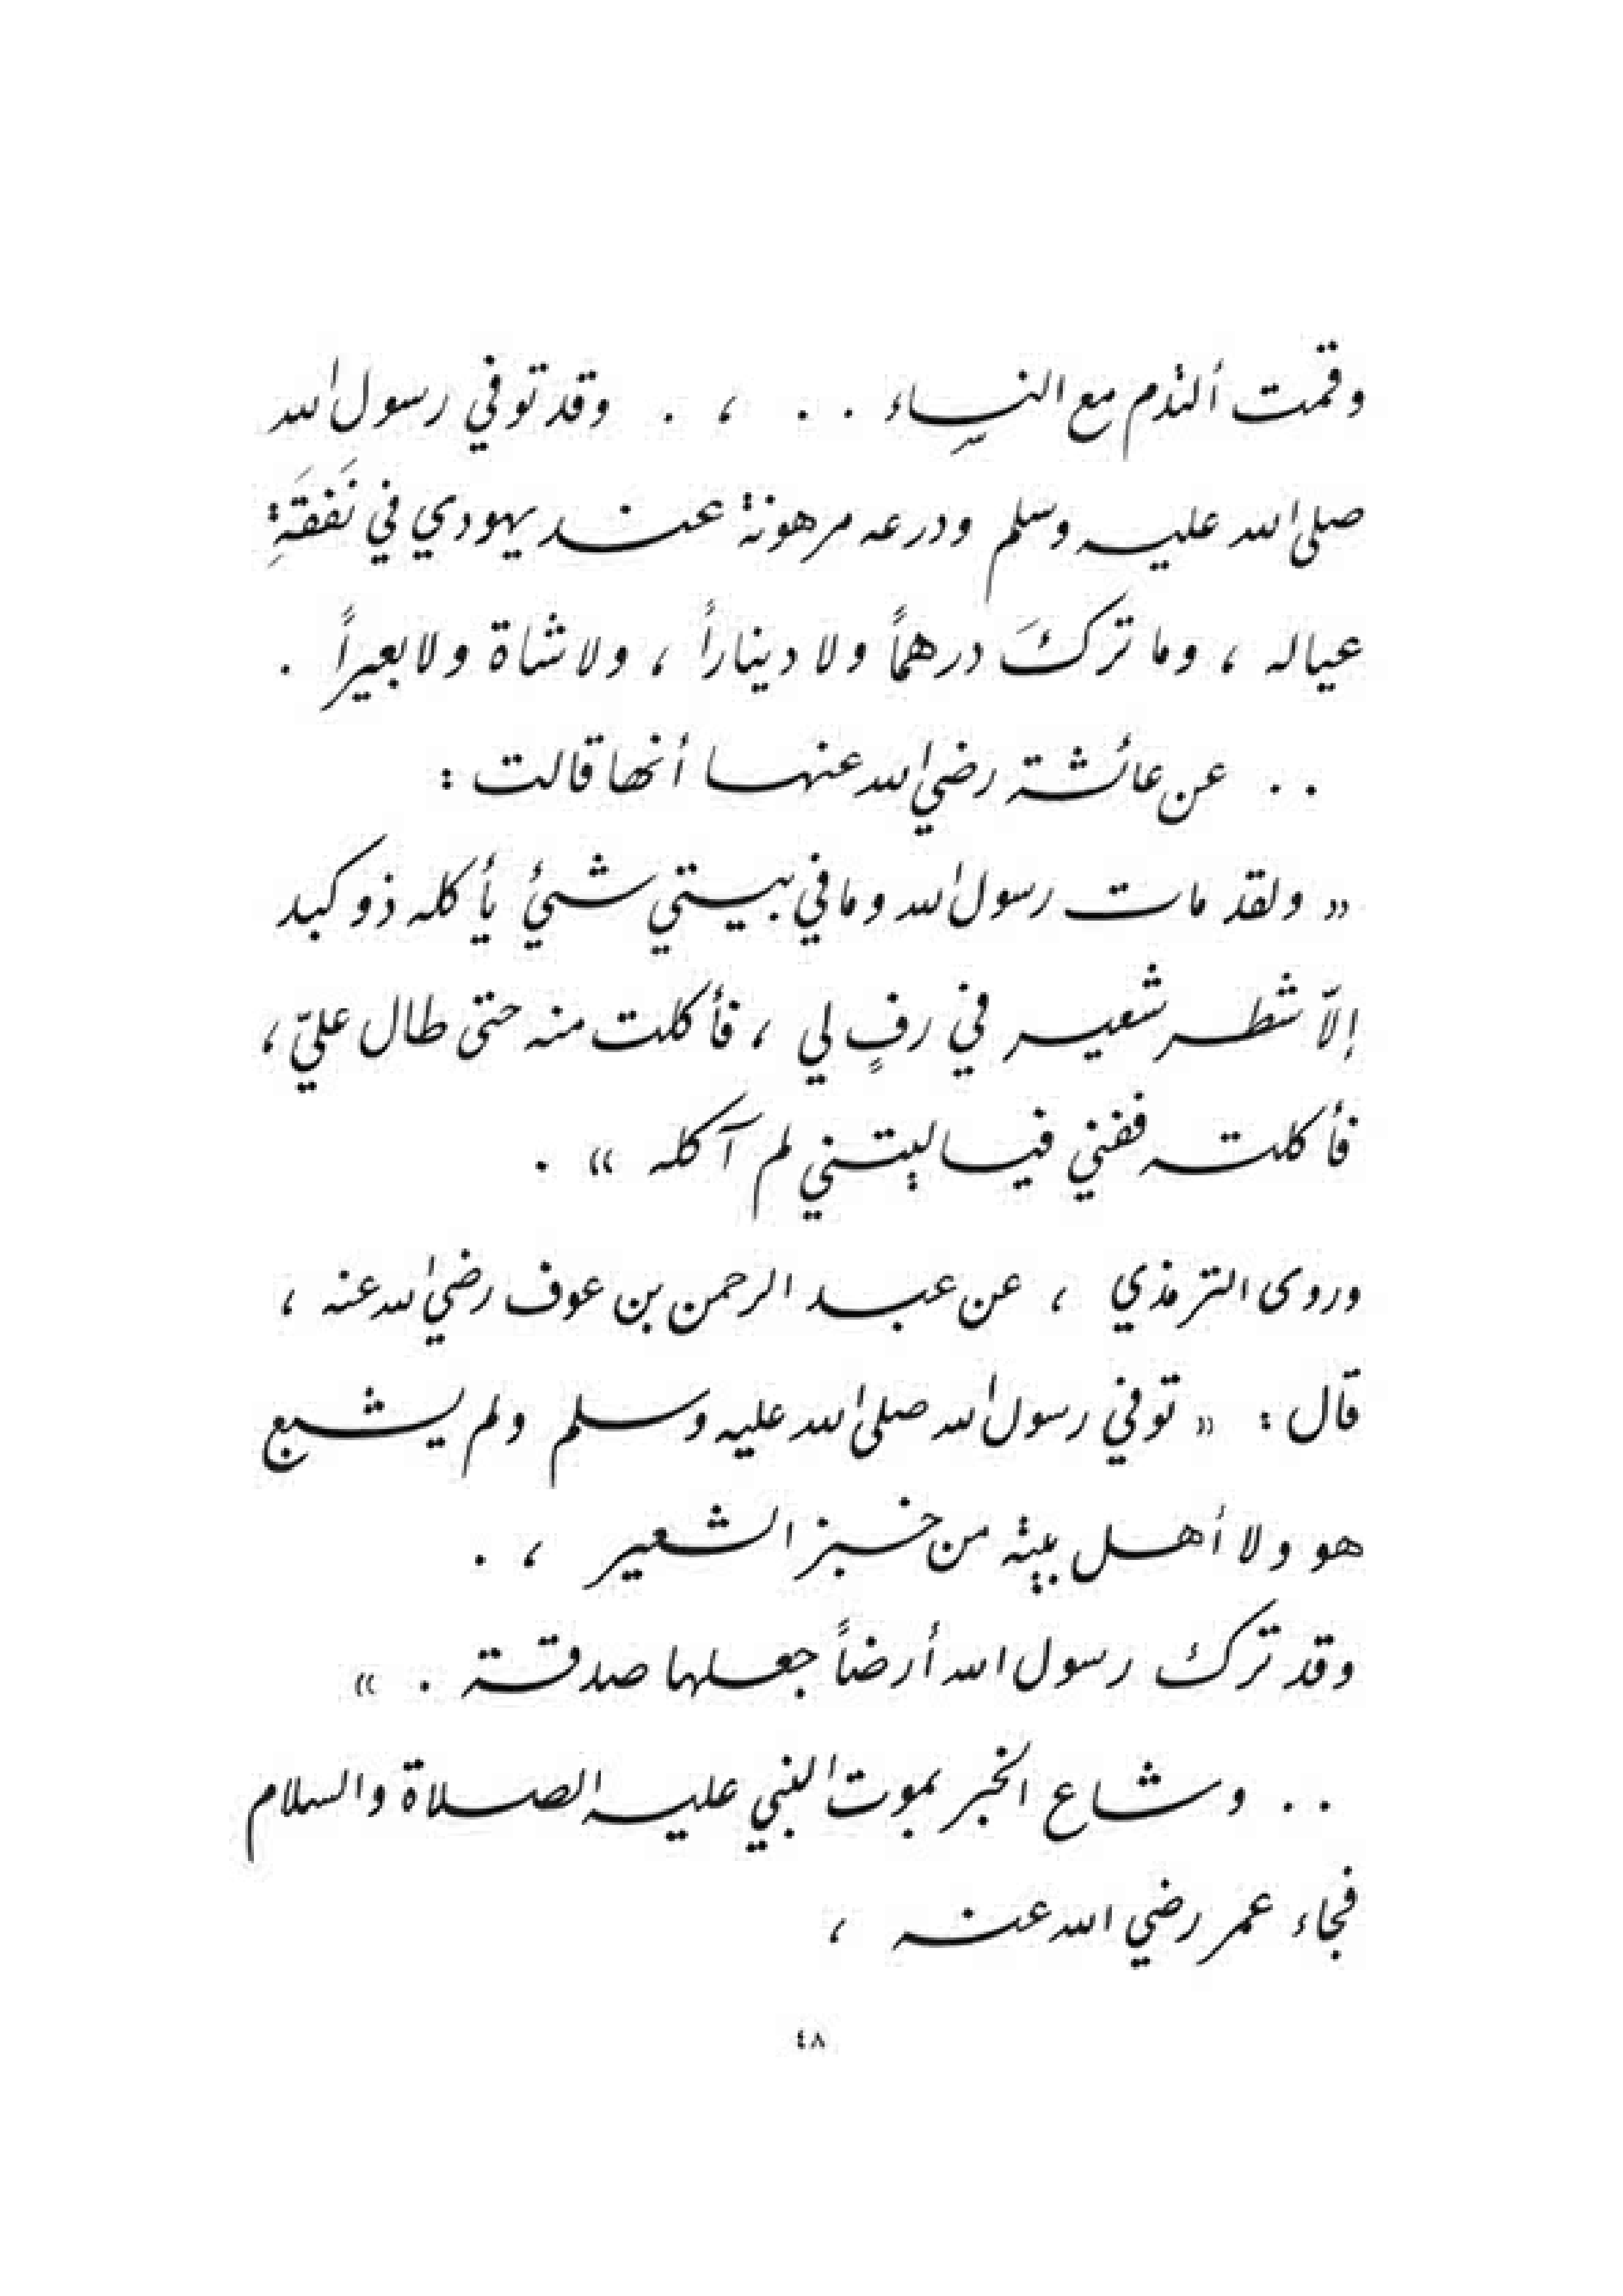 وقمت ألتدم مع النساء . . ، . وقد توفي رسول الله
صلى الله عليه وسلم ودرعه مرهونة عند يهودي في نَفقَةِ
عياله ، وما تركَ درهماً ولا ديناراً ، ولا شاة ولا بعيراً .
. . عن عائشة رضي الله عنها أنها قالت :
« ولقد مات رسول الله وما في بيتي شيئ يأكله ذو كبد
إلاّ شطر شعير في رفٍ لي ، فأكلت منه حتى طال عليّ ،
فأكلته ففني فيا ليتني لم آكله » .
وروى الترمذي ، عن عبد الرحمن بن عوف رضي الله عنه ،
قال : « توفي رسول الله صلى الله عليه وسلم ولم يشبع
هو ولا أهل بيته من خبز الشعير ، .
وقد ترك رسول الله أرضاً جعلها صدقة . »
. . وشاع الخبر بموت النبي عليه الصلاة والسلام
فجاء عمر رضي الله عنه ،
٤٨